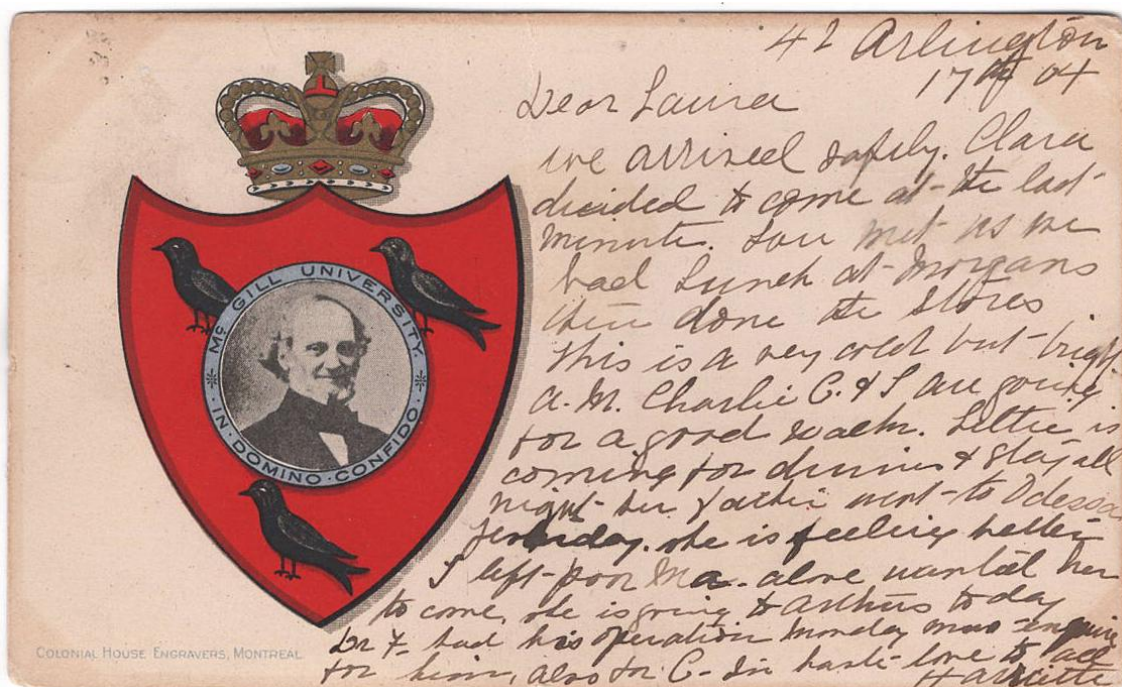 42 Arlington
17th 04
Dear Laura
we arrived safely. Clara
decided to come at the last
minute. Lou met us we
had Lunch at Morgans
then done the Stores
this is a very cold but bright
A.M. Charlie C. & I are going
for a good walk. Lettie is
coming for dinner & stay all
night her father went to Odessa
yesterday. she is feeling better
I left poor Ma. alone wanted her
to come, she is going to Arthurs today
Dr F. had his operation Monday enquire
for him, also Dr C. In haste love to all
Harriette
Mc GILL UNIVERSITY.
IN · DOMINO · CONFIDO ·
COLONIAL HOUSE ENGRAVERS, MONTREAL